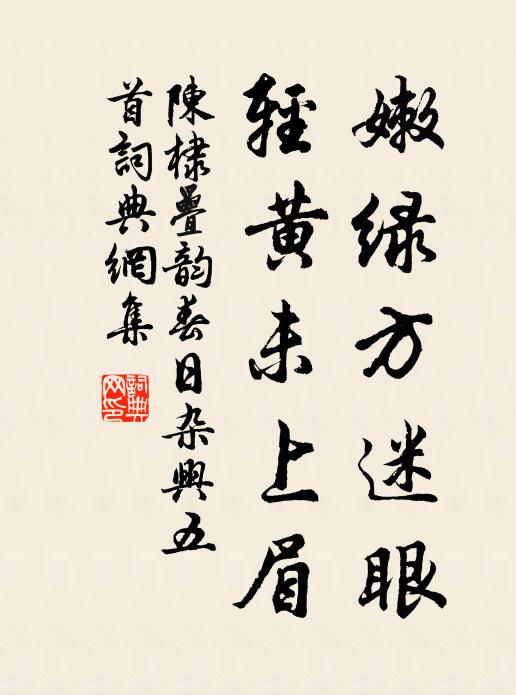 嫩绿方迷眼
輕黄未上眉
陳棣疊韵春日杂興五
首詞典網集
詞典
网印